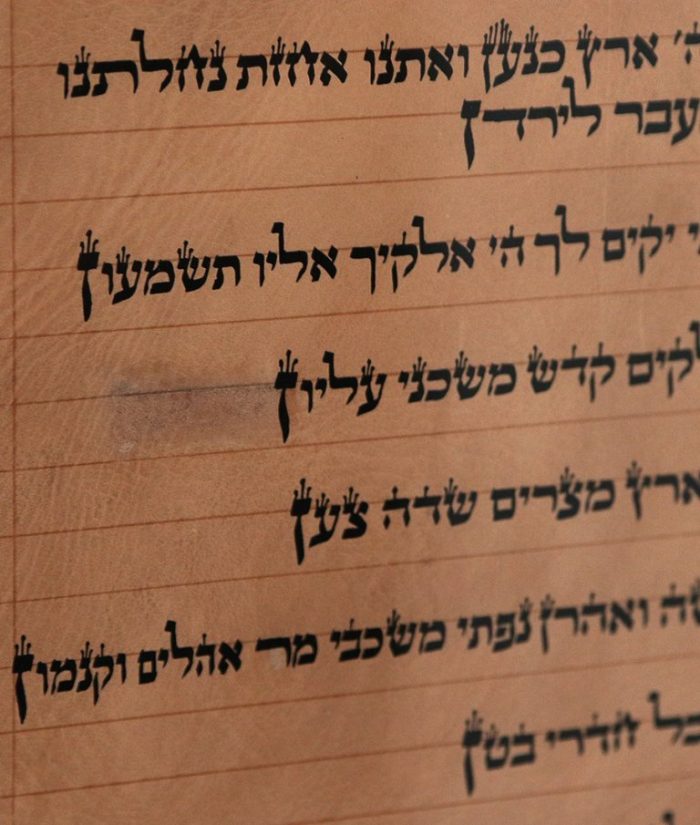 ה׳ ארץ כנען ואתנו אחזת נחלתנו
עבר לירדן
יקים לך ה׳ אלקיך אליו תשמעון
לקים קדש משכני עליון
ארץ מצרים שדה צען
ואהרן נפתי משכבי מר אהלים וקנמון
כל חדרי בטן